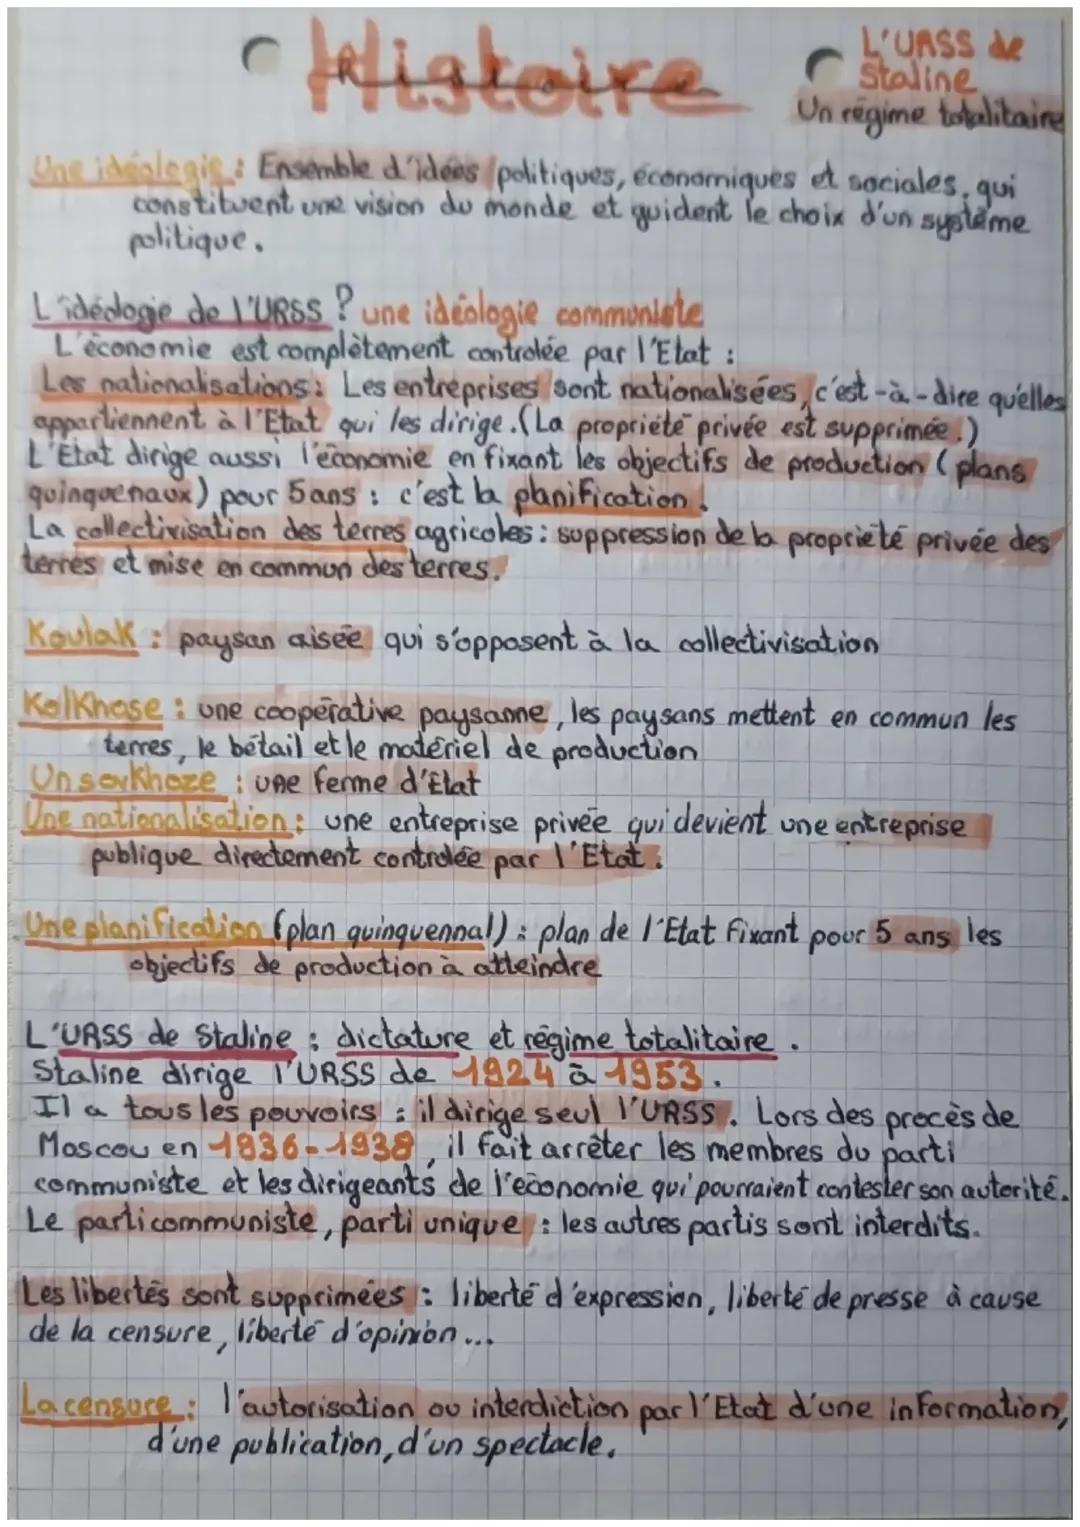 Histoire
L'URSS de
Staline
Un régime totalitaire
Une idéologie : Ensemble d'idées politiques, économiques et sociales, qui
constituent une vision du monde et guident le choix d'un système
politique.
L'idéologie de l'URSS ? une idéologie communiste
L'économie est complètement controlée par l'Etat :
Les nationalisations : Les entreprises sont nationalisées, c'est-à-dire qu'elles
appartiennent à l'Etat qui les dirige. (La propriété privée est supprimée.)
L'Etat dirige aussi l'économie en fixant les objectifs de production (plans
quinquenaux) pour 5 ans : c'est la planification.
La collectivisation des terres agricoles : suppression de la propriété privée des
terres et mise en commun des terres.
Koulak : paysan aisée qui s'opposent à la collectivisation
Kolkhose : une coopérative paysanne, les paysans mettent en commun les
terres, le bétail et le matériel de production
Un sovkhoze : une ferme d'Etat
Une nationalisation : une entreprise privée qui devient une entreprise
publique directement controlée par l'Etat.
Une planification (plan quinquennal) : plan de l'Etat fixant pour 5 ans les
objectifs de production à atteindre
L'URSS de Staline : dictature et régime totalitaire.
Staline dirige l'URSS de 1924 à 1953.
Il a tous les pouvoirs : il dirige seul l'URSS. Lors des procès de
Moscou en 1936-1938, il fait arrêter les membres du parti
communiste et les dirigeants de l'économie qui pourraient contester son autorité.
Le parti communiste, parti unique : les autres partis sont interdits.
Les libertés sont supprimées : liberté d'expression, liberté de presse à cause
de la censure, liberté d'opinion...
La censure : l'autorisation ou interdiction par l'Etat d'une information,
d'une publication, d'un spectacle.